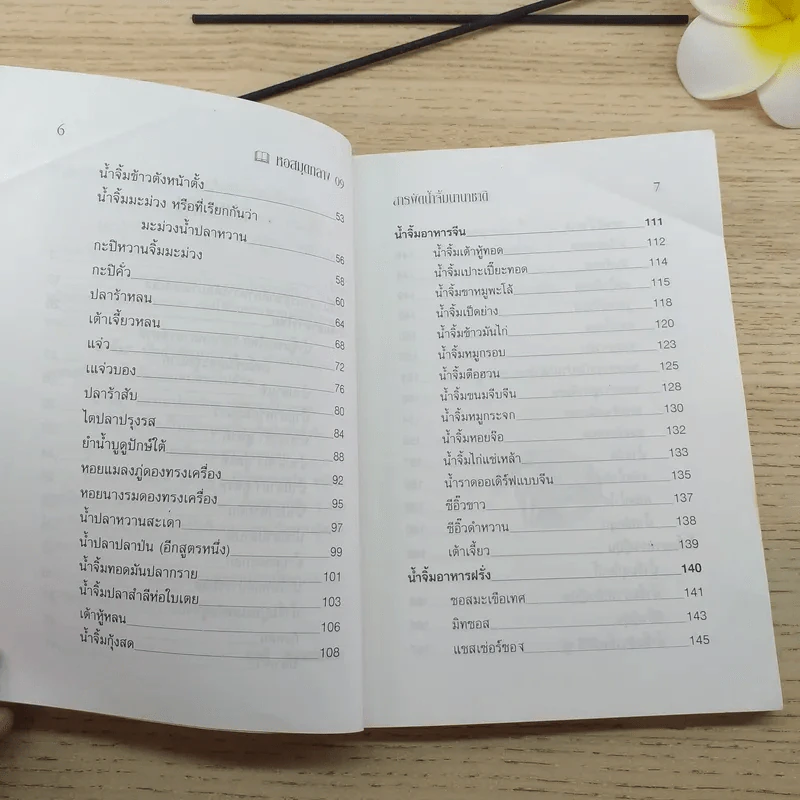 6
หอสมุดกลาง 09
น้ำจิ้มข้าวตังหน้าตั้ง 53
น้ำจิ้มมะม่วง หรือที่เรียกกันว่า
มะม่วงน้ำปลาหวาน 56
กะปิหวานจิ้มมะม่วง 58
กะปิคั่ว 60
ปลาร้าหลน 64
เต้าเจี้ยวหลน 68
แจ่ว 72
แจ่วบอง 76
ปลาร้าสับ 80
ไตปลาปรุงรส 84
ยำน้ำบูดูปักษ์ใต้ 88
หอยแมลงภู่ดองทรงเครื่อง 92
หอยนางรมดองทรงเครื่อง 95
น้ำปลาหวานสะเดา 97
น้ำปลาปลาป่น (อีกสูตรหนึ่ง) 99
น้ำจิ้มทอดมันปลากราย 101
น้ำจิ้มปลาสำลีห่อใบเตย 103
เต้าหู้หลน 106
น้ำจิ้มกุ้งสด 108
สารพัดน้ำจิ้มนานาชาติ 7
น้ำจิ้มอาหารจีน 111
น้ำจิ้มเต้าหู้ทอด 112
น้ำจิ้มเปาะเปี๊ยะทอด 114
น้ำจิ้มขาหมูพะโล้ 115
น้ำจิ้มเป็ดย่าง 118
น้ำจิ้มข้าวมันไก่ 120
น้ำจิ้มหมูกรอบ 123
น้ำจิ้มดือฮวน 125
น้ำจิ้มขนมจีบจีน 128
น้ำจิ้มหมูกระจก 130
น้ำจิ้มหอยจ๊อ 132
น้ำจิ้มไก่แช่เหล้า 133
น้ำราดออเดิร์ฟแบบจีน 135
ซีอิ๊วขาว 137
ซีอิ๊วดำหวาน 138
เต้าเจี้ยว 139
น้ำจิ้มอาหารฝรั่ง 140
ซอสมะเขือเทศ 141
มิทซอส 143
แชสเซ่อร์ซอส 145